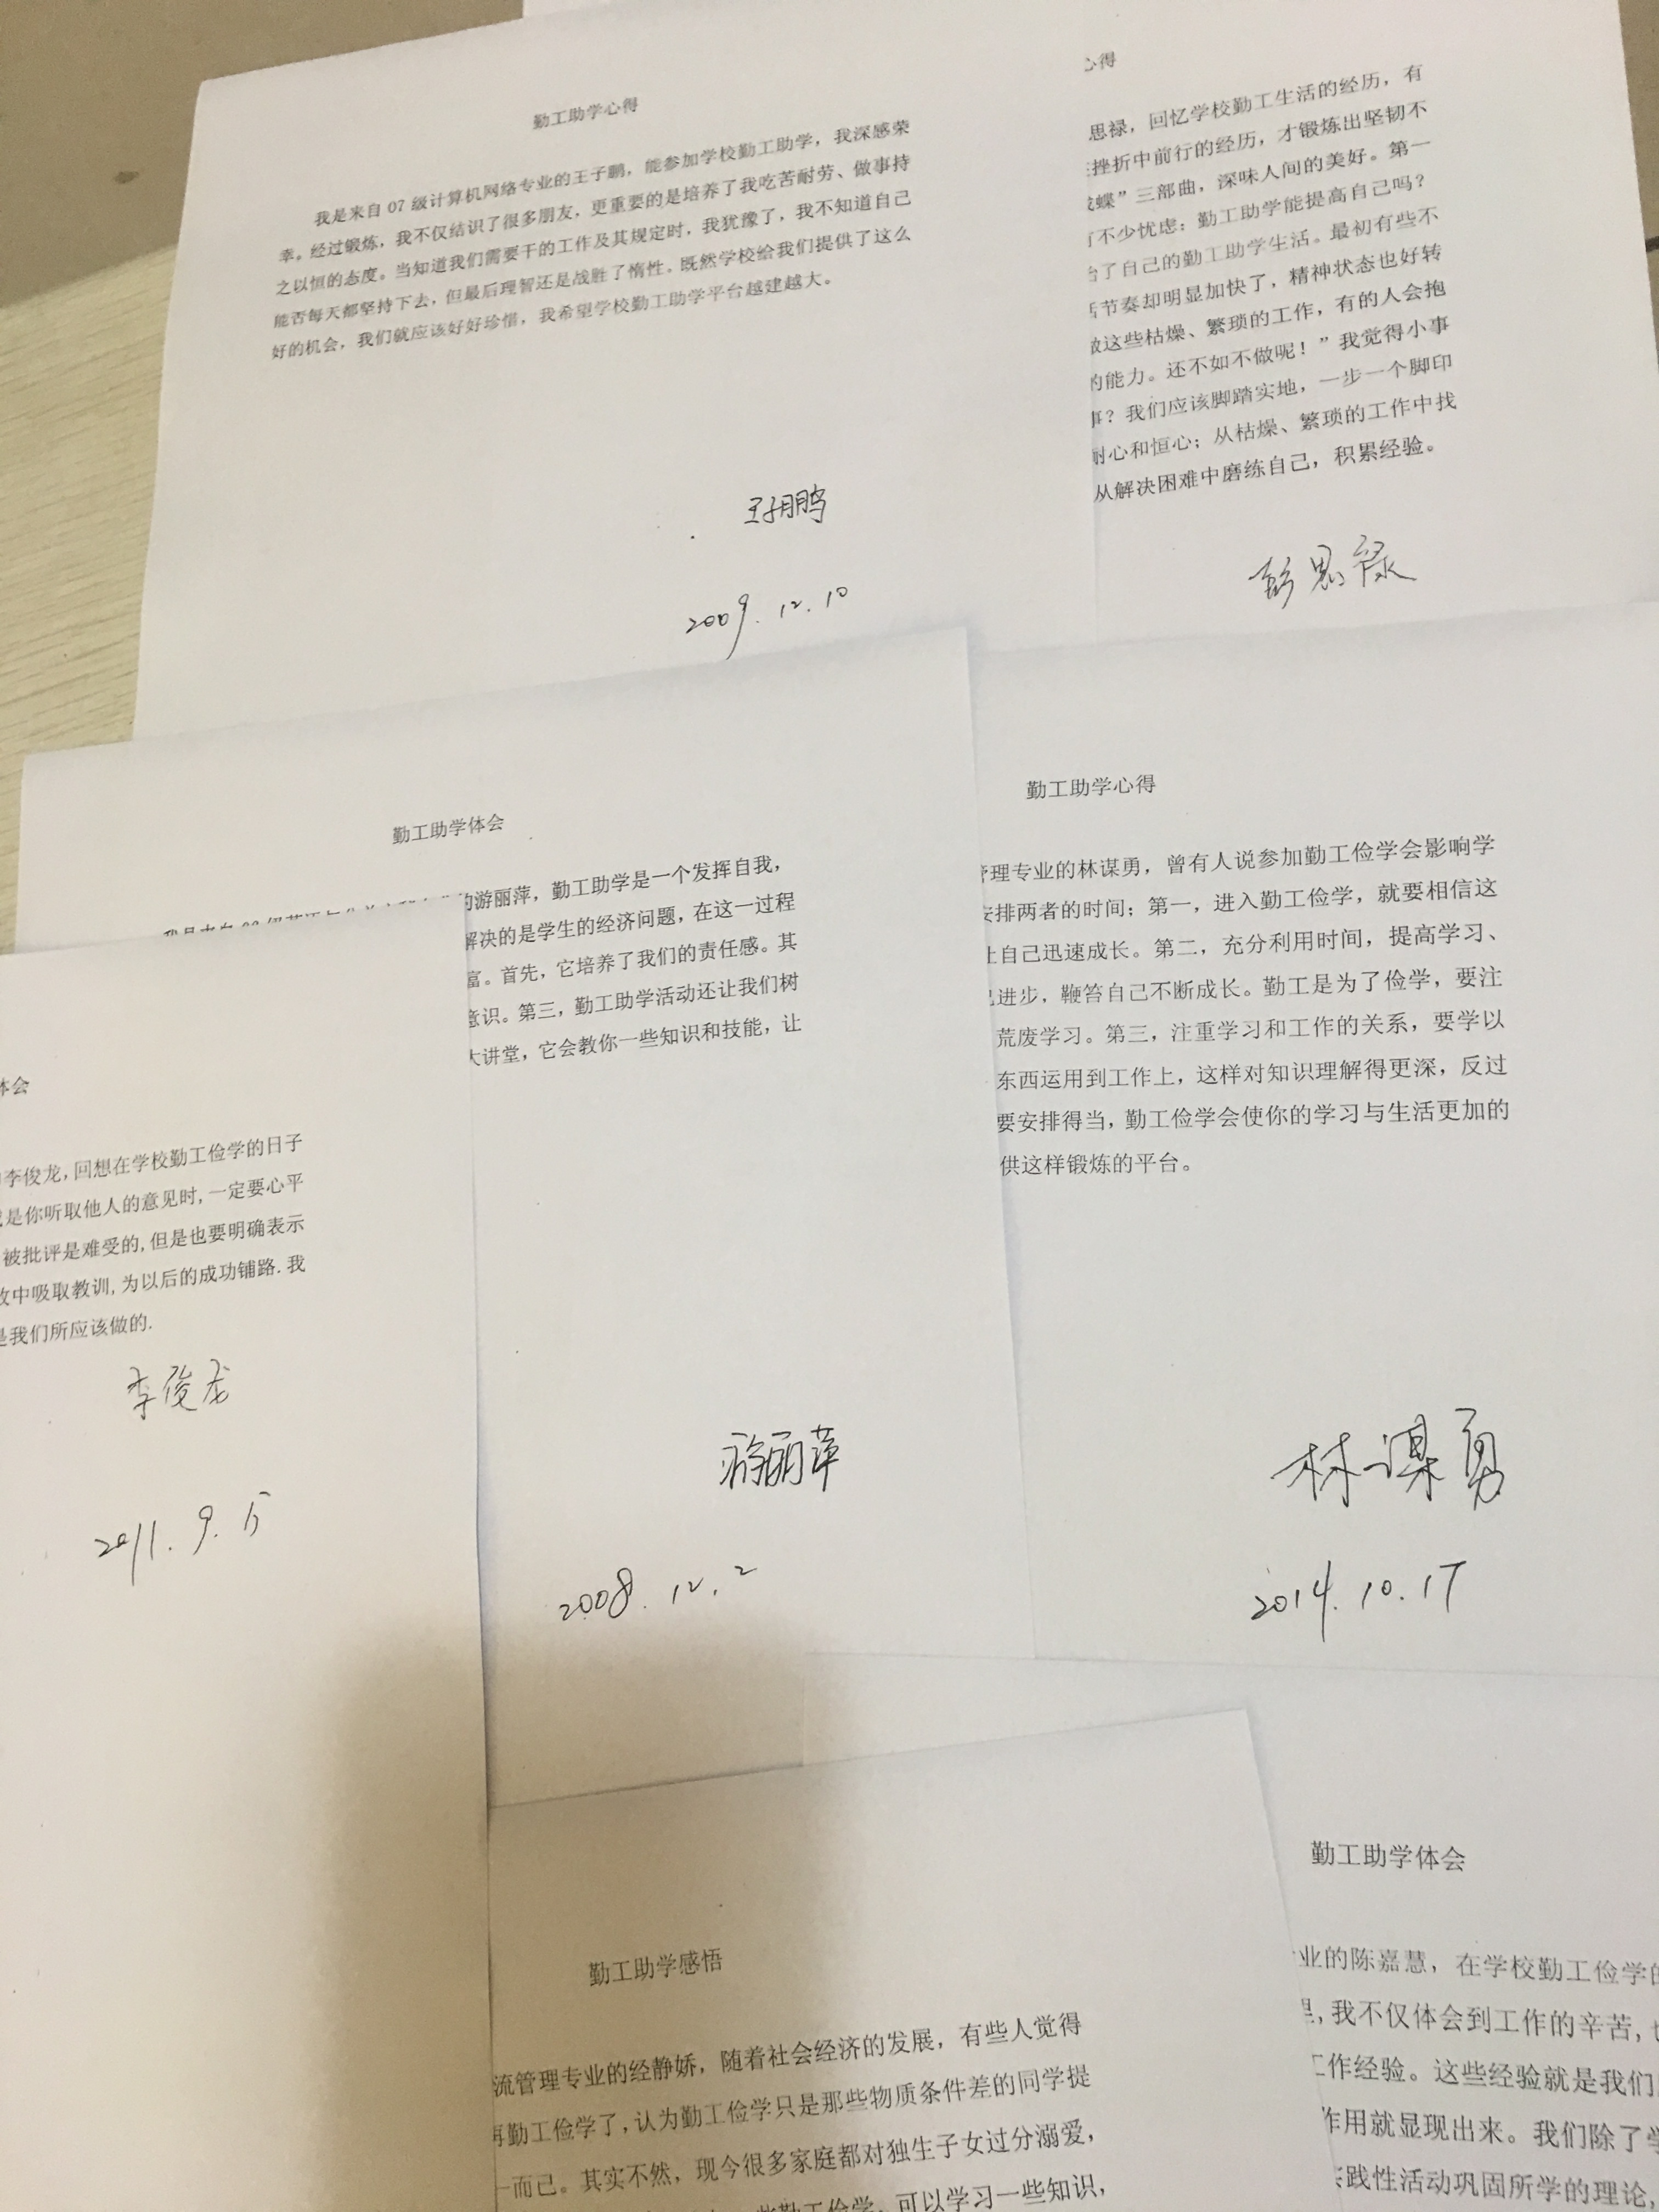 勤工助学心得
我是来自 07 级计算机网络专业的王子鹏，能参加学校勤工助学，我深感荣
幸。经过锻炼，我不仅结识了很多朋友，更重要的是培养了我吃苦耐劳、做事持
之以恒的态度。当知道我们需要干的工作及其规定时，我犹豫了，我不知道自己
能否每天都坚持下去，但最后理智还是战胜了惰性。既然学校给我们提供了这么
好的机会，我们就应该好好珍惜，我希望学校勤工助学平台越建越大。
王子鹏
2009.12.10
心得
思禄，回忆学校勤工生活的经历，有
挫折中前行的经历，才锻炼出坚韧不
蝶”三部曲，深味人间的美好。第一
不少忧虑：勤工助学能提高自己吗？
了自己的勤工助学生活。最初有些不
节奏却明显加快了，精神状态也好转
做这些枯燥、繁琐的工作，有的人会抱
的能力。还不如不做呢！”我觉得小事
事？我们应该脚踏实地，一步一个脚印
耐心和恒心；从枯燥、繁琐的工作中找
从解决困难中磨练自己，积累经验。
彭思禄
勤工助学体会
的游丽萍，勤工助学是一个发挥自我，
解决的是学生的经济问题，在这一过程
富。首先，它培养了我们的责任感。其
意识。第三，勤工助学活动还让我们树
大讲堂，它会教你一些知识和技能，让
游丽萍
2008.12.2
勤工助学心得
管理专业的林谋勇，曾有人说参加勤工俭学会影响学
安排两者的时间；第一，进入勤工俭学，就要相信这
让自己迅速成长。第二，充分利用时间，提高学习、
进步，鞭笞自己不断成长。勤工是为了俭学，要注
荒废学习。第三，注重学习和工作的关系，要学以
东西运用到工作上，这样对知识理解得更深，反过
要安排得当，勤工俭学会使你的学习与生活更加的
供这样锻炼的平台。
林谋勇
2014.10.17
体会
李俊龙,回想在学校勤工俭学的日子
是你听取他人的意见时,一定要心平
被批评是难受的,但是也要明确表示
败中吸取教训,为以后的成功铺路.我
是我们所应该做的.
李俊龙
2011.9.15
勤工助学感悟
流管理专业的经静娇，随着社会经济的发展，有些人觉得
再勤工俭学了,认为勤工俭学只是那些物质条件差的同学提
而已。其实不然，现今很多家庭都对独生子女过分溺爱，
勤工俭学，可以学习一些知识，
勤工助学体会
业的陈嘉慧，在学校勤工俭学的
里,我不仅体会到工作的辛苦,
工作经验。这些经验就是我们
作用就显现出来。我们除了学
实践性活动巩固所学的理论，